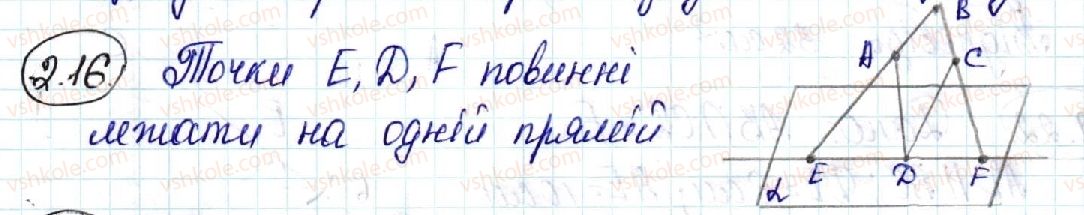 2.16. Точки E, D, F повинні
лежати на одній прямій
B
A
C
E
D
F
α
vshkole.com